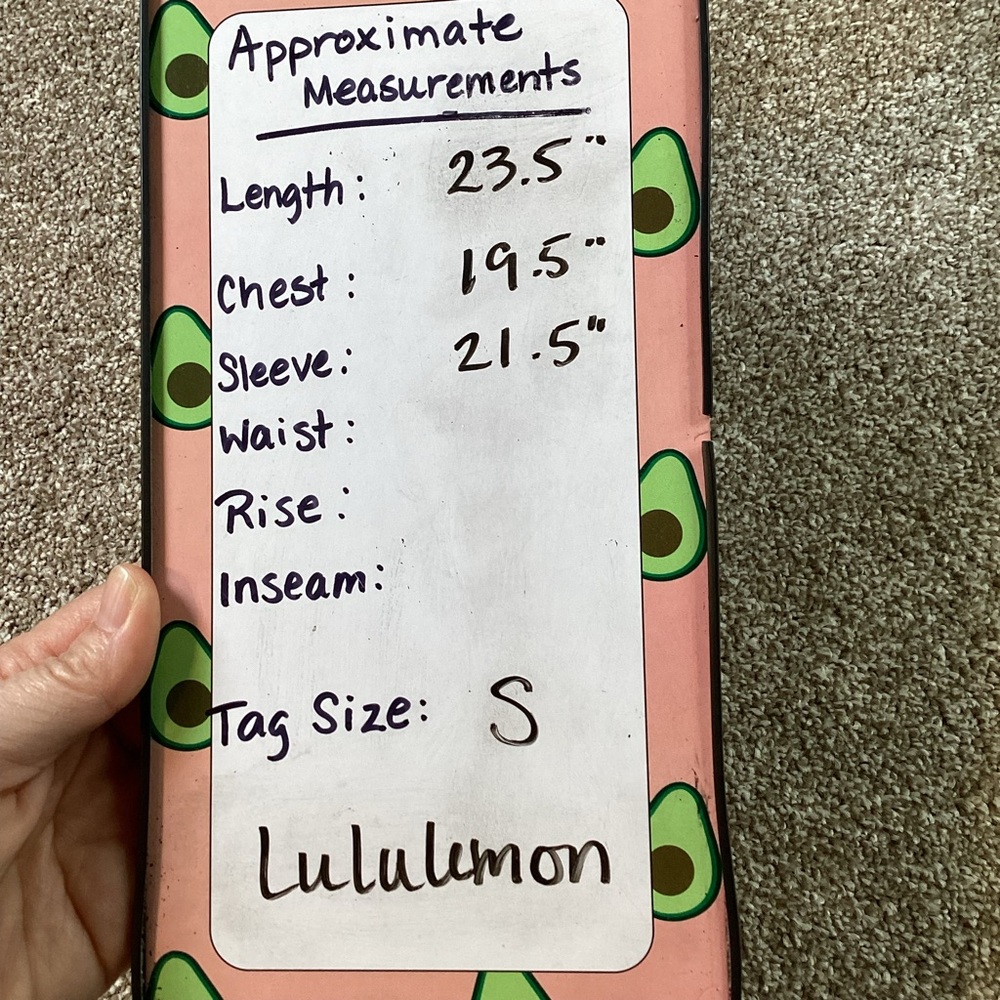 Approximate
Measurements
Length: 23.5"
Chest: 19.5"
Sleeve: 21.5"
Waist:
Rise:
Inseam:
Tag Size: S
Lululemon